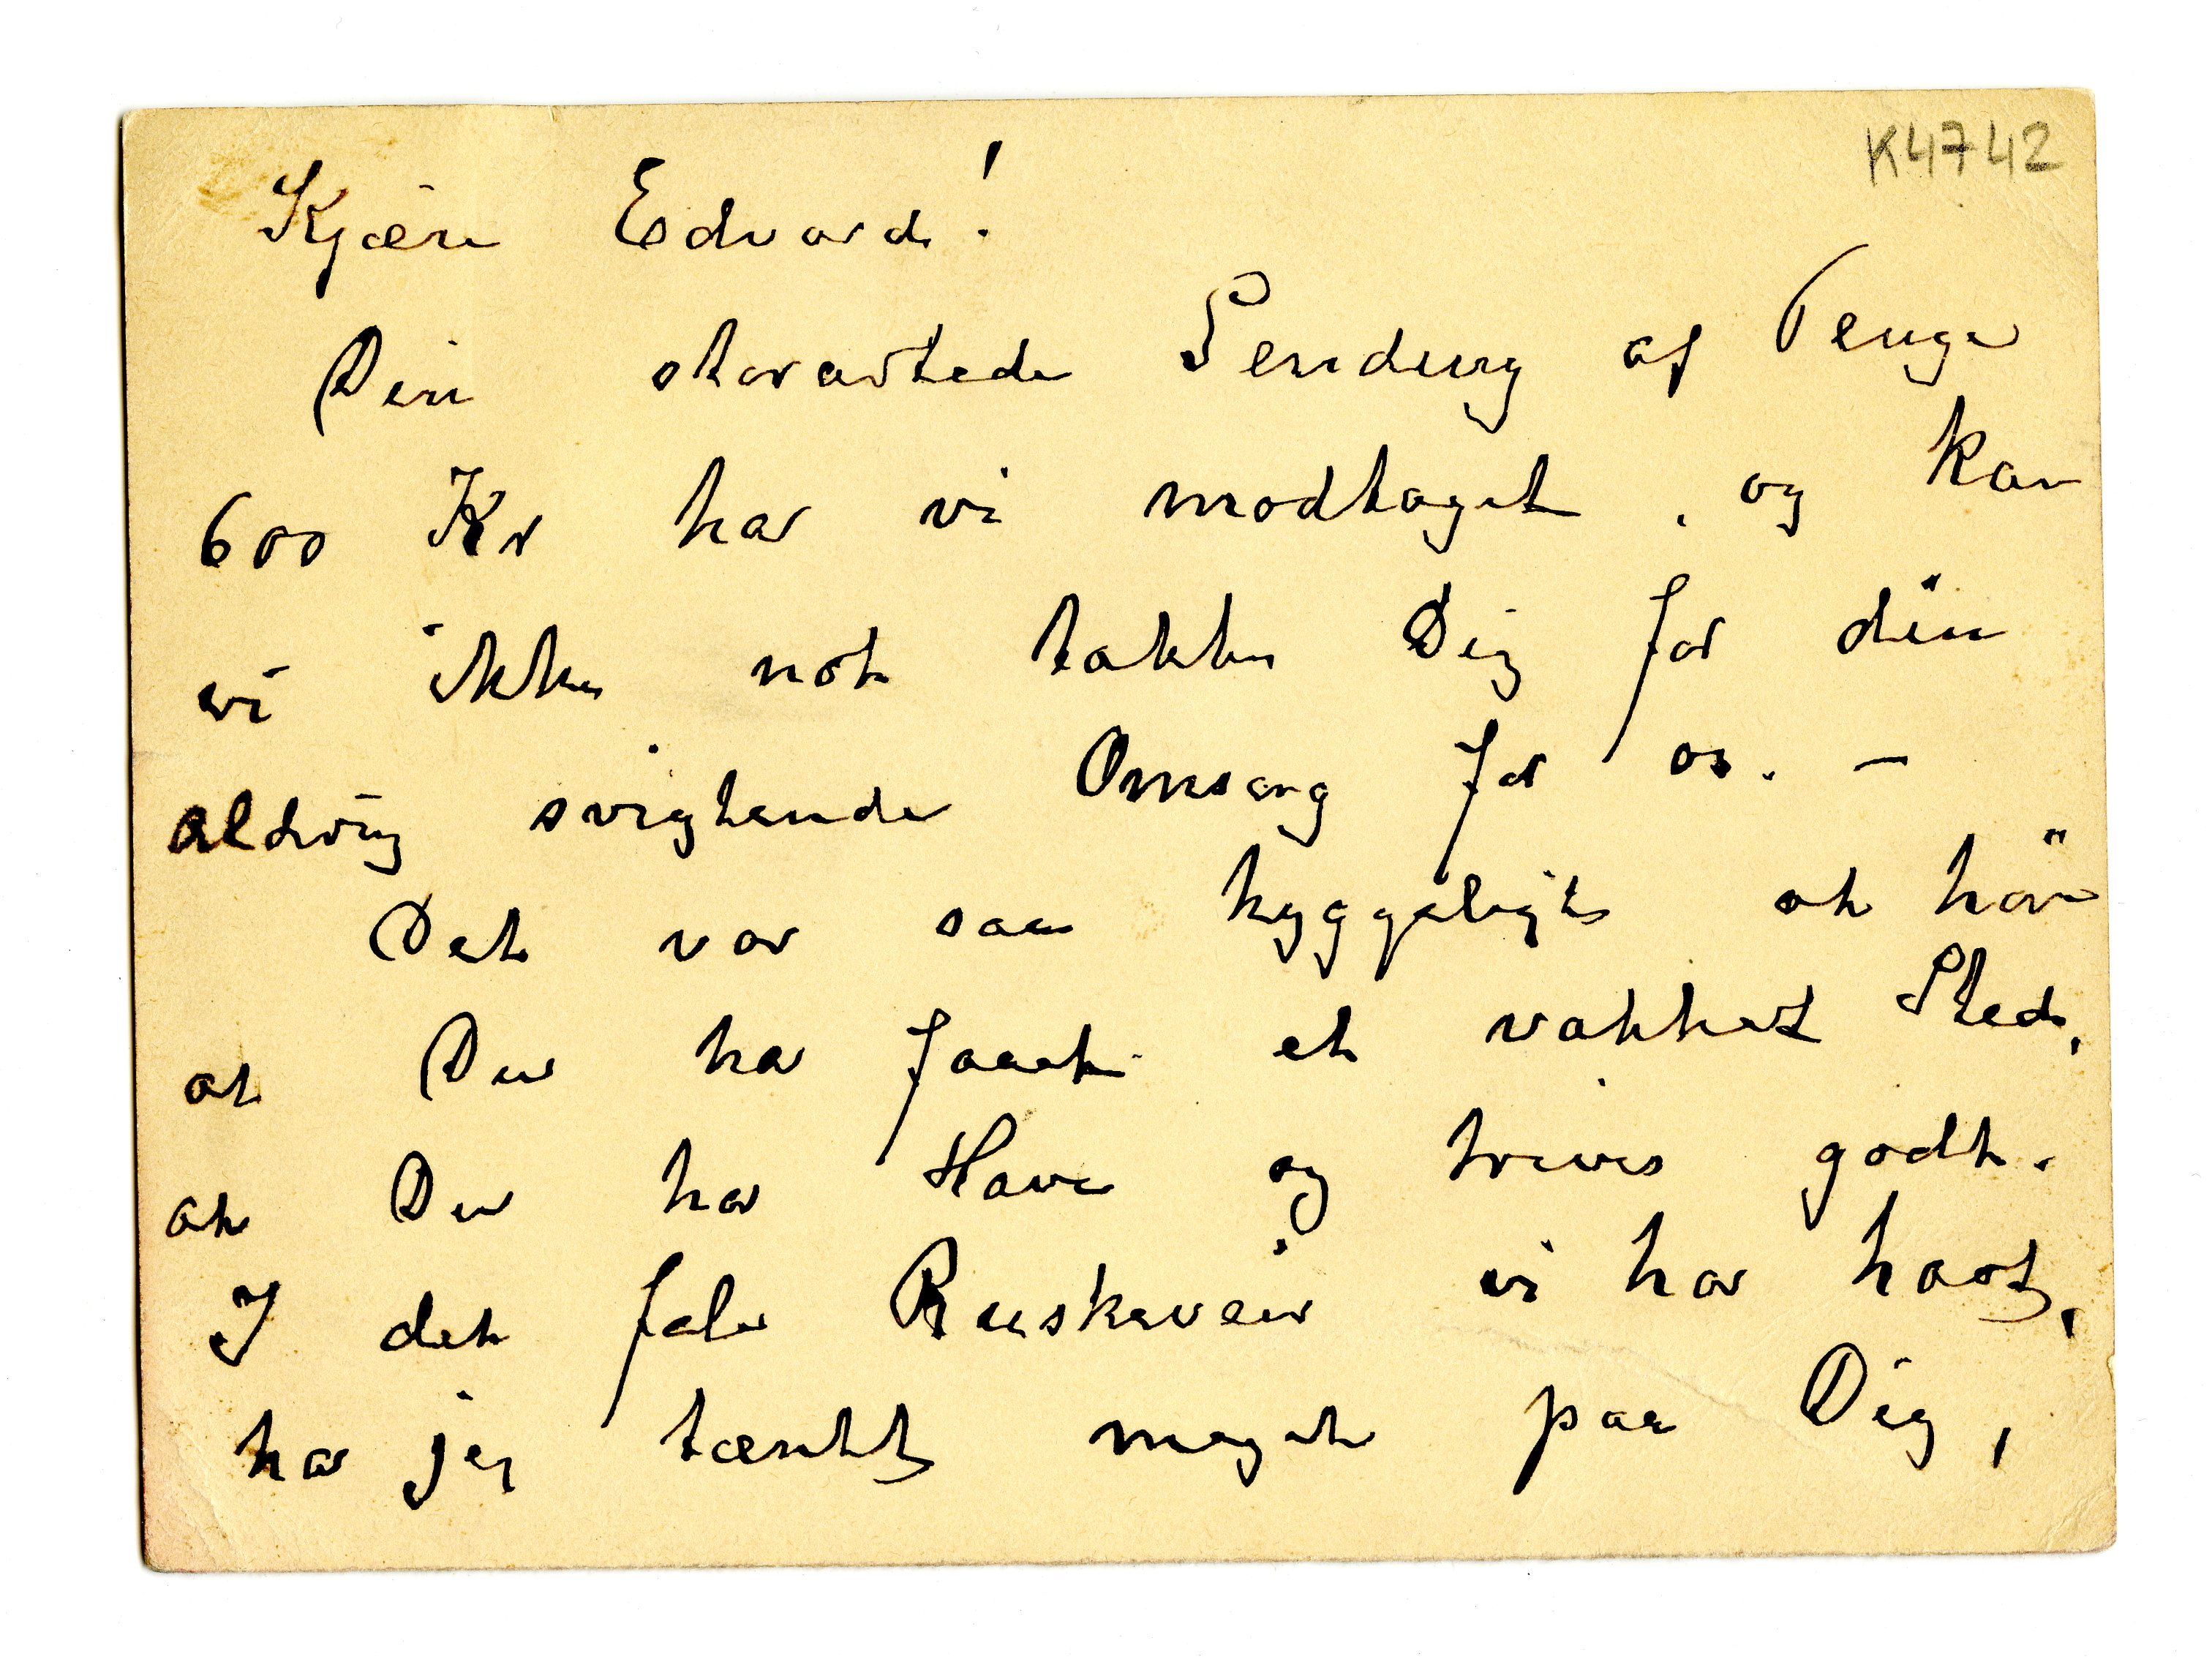 K4742
Kjære Edvard!
Din storartede Sending af Penge
600 Kr har vi modtaget, og kan
vi ikke nok takke Dig for din
aldrig svigtende Omsorg for os. –
Det var saa hyggeligt at høre
at Du har faaet et vakkert Sted,
at Du har Have og trives godt.
I det fæle Ruskeveir vi har havt,
har jeg tænkt meget paa Dig,